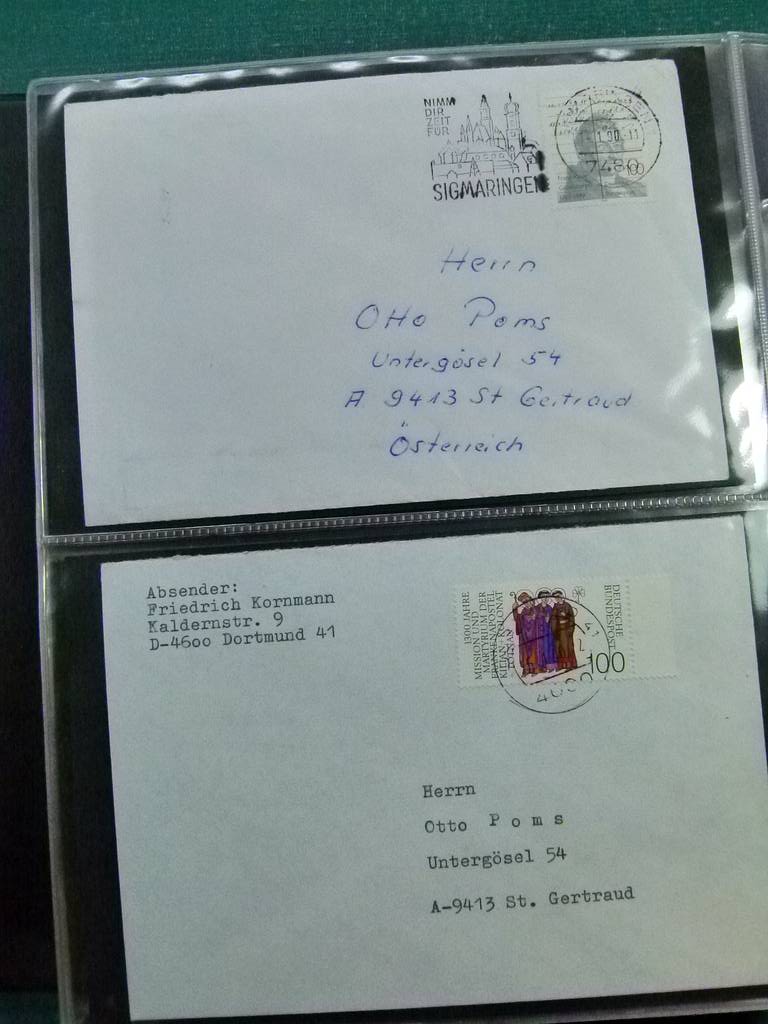 NIMM
DIR
ZEIT
FÜR
SIGMARINGEN
7480
100
Herrn
Otto Poms
Untergösel 54
A 9413 St Gertraud
Österreich
Absender:
Friedrich Kornmann
Kaldernstr. 9
D-4600 Dortmund 41
1300 JAHRE
MISSION UND
MARTYRIUM DER
FRANKENAPOSTEL
KILIAN, KOLONAT
TOTNAN
DEUTSCHE
BUNDESPOST
100
41
Herrn
Otto P o m s
Untergösel 54
A-9413 St. Gertraud